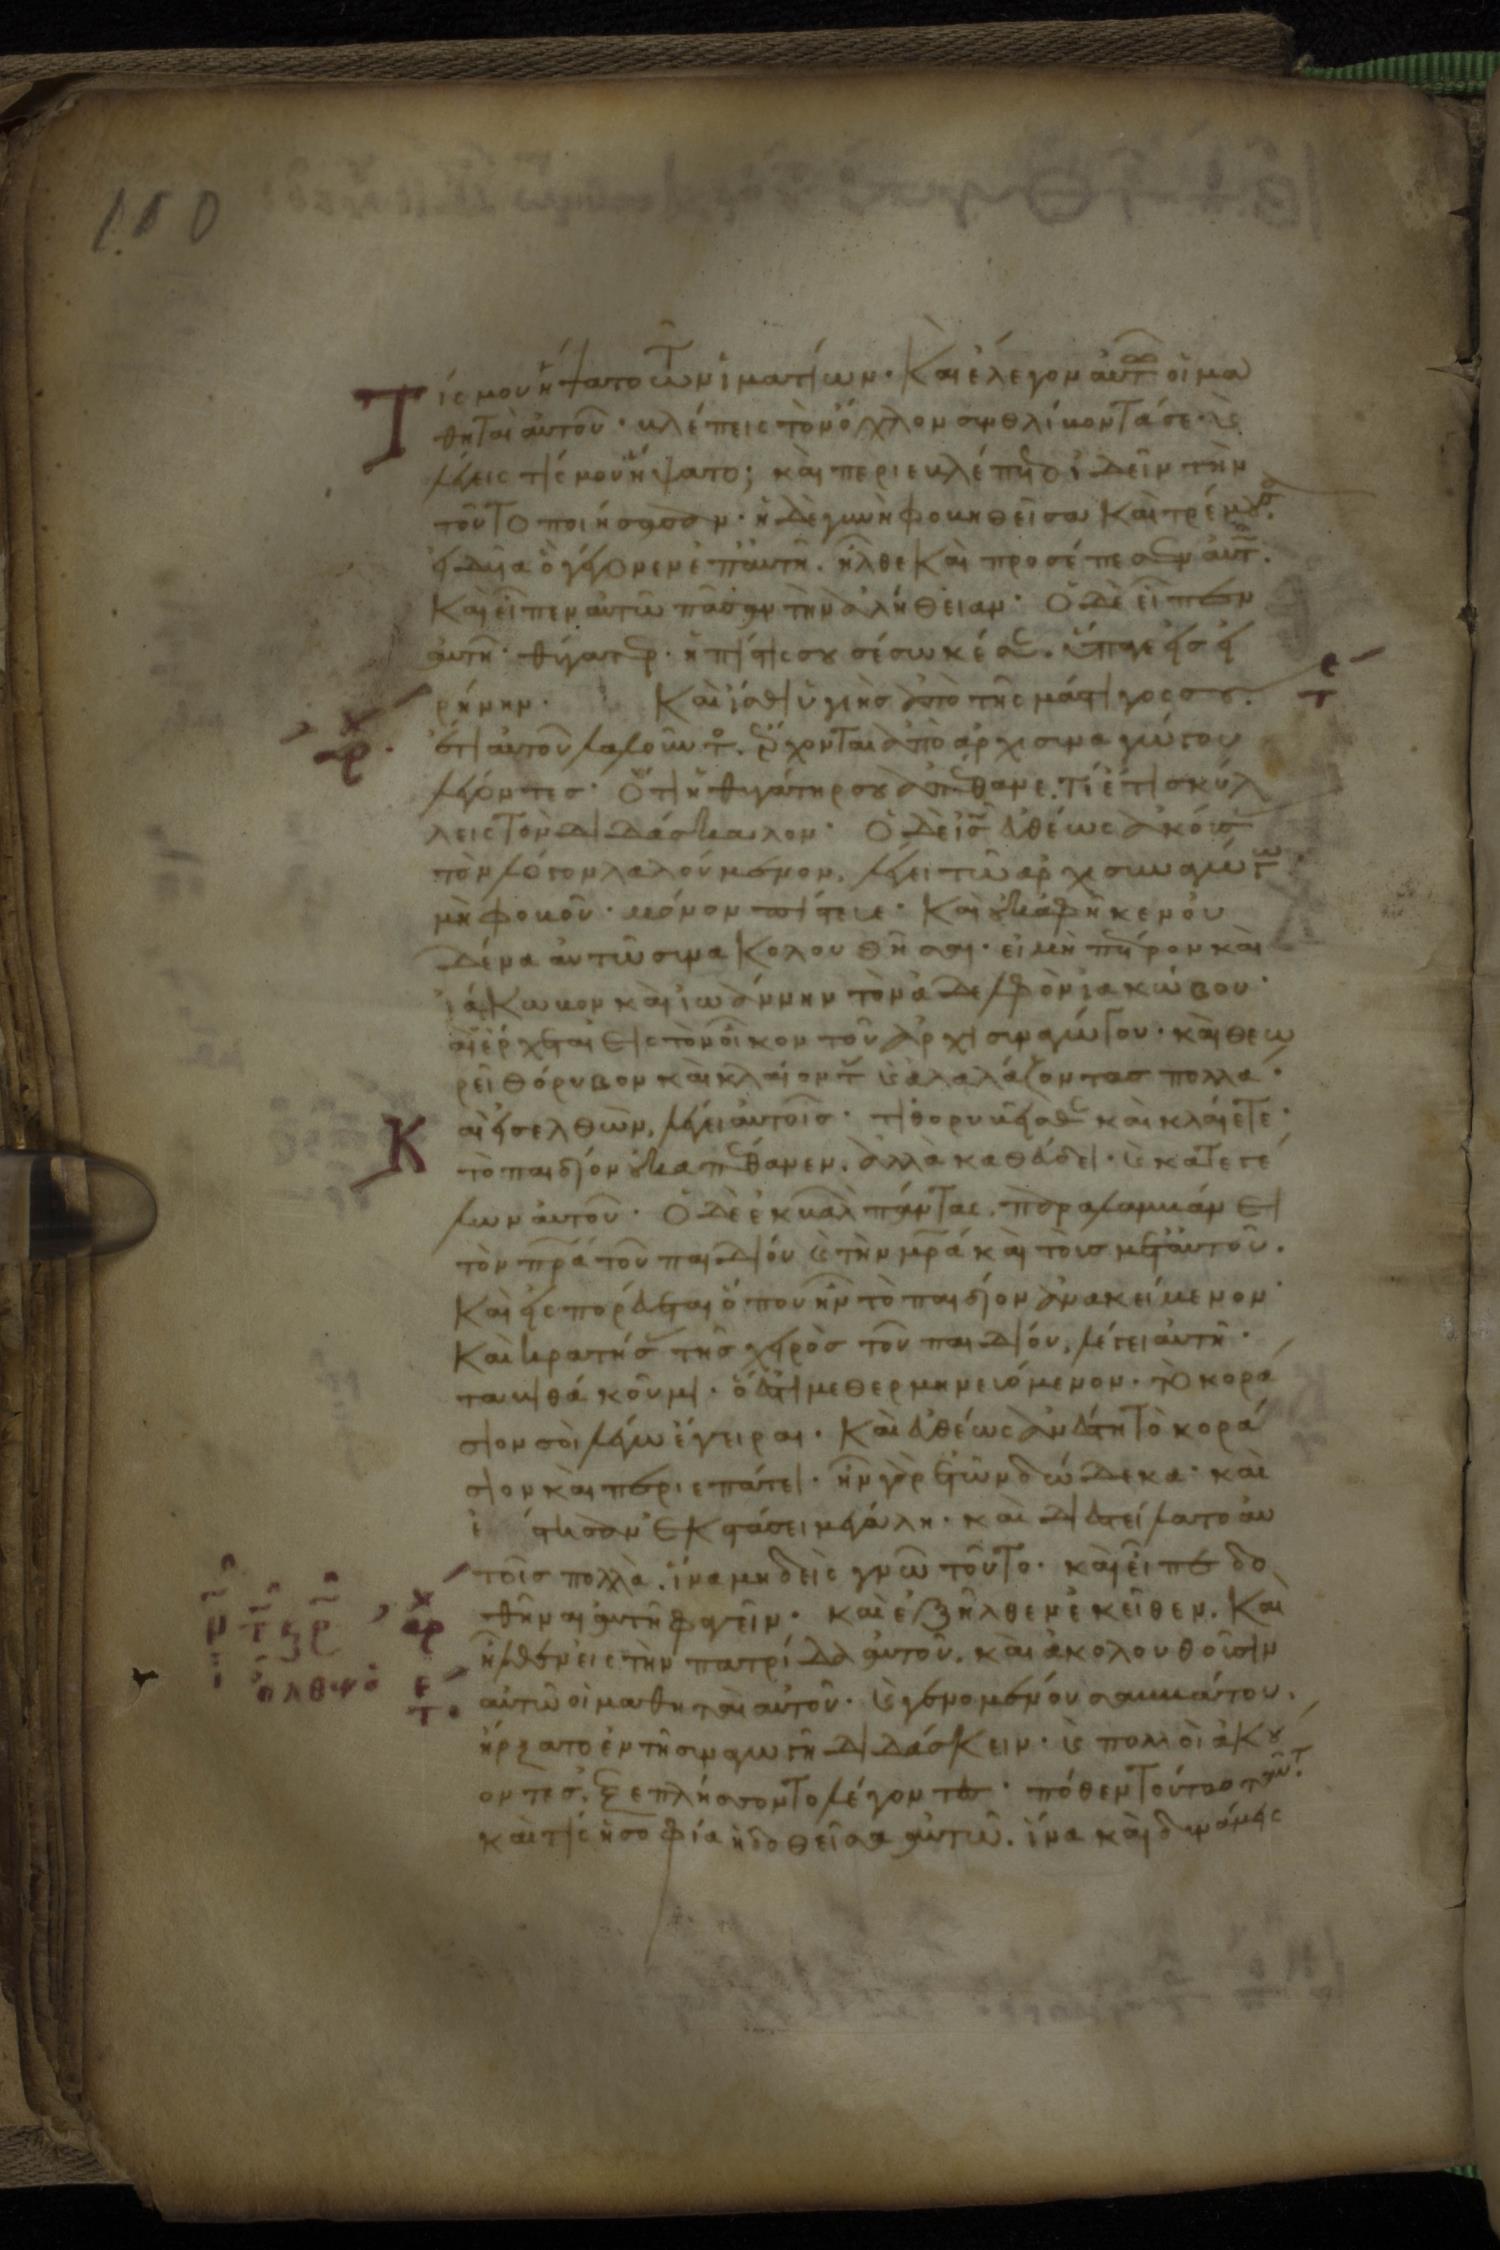 110
Τίς μου ἥψατο τῶν ἱματίων· Καὶ ἔλεγον αὐτῷ οἱ μα
θηταὶ αὐτοῦ· βλέπεις τὸν ὄχλον συνθλίβοντά σε· καὶ
λέγεις τίς μου ἥψατο; καὶ περιεβλέπετο ἰδεῖν τὴν
τοῦτο ποιήσασαν· ἡ δὲ γυνὴ φοβηθεῖσα Καὶ τρέμουσα.
εἰδυῖα ὃ γέγονεν ἐπ' αὐτῇ. ἦλθε Καὶ προσέπεσεν αὐτῷ.
Καὶ εἶπεν αὐτῷ πᾶσαν τὴν ἀλήθειαν· Ὁ δὲ εἶπεν
αὐτῇ· θύγατερ· ἡ πίστις σου σέσωκέ σε. ὕπαγε εἰς εἰ
ρήνην· Καὶ ἴσθι ὑγιὴς ἀπὸ τῆς μάστιγός σου.
ἔτι αὐτοῦ λαλοῦντος. ἔρχονται ἀπὸ ἀρχισυναγώγου
λέγοντες· Ὅτι ἡ θυγάτηρ σου ἀπέθανε. τί ἔτι σκύλ
λεις τὸν διδάσκαλον· Ὁ δὲ ἰς εὐθέως ἀκούσας
τὸν λόγον λαλούμενον, λέγει τῷ ἀρχισυναγώγῳ·
μὴ φοβοῦ· μόνον πίστευε· Καὶ οὐκ ἀφῆκεν οὐ
δένα αὐτῷ συνακολουθῆσαι· εἰ μὴ πέτρον καὶ
ἰάκωβον καὶ ἰωάννην τὸν ἀδελφὸν ἰακώβου·
αὶ ἔρχεται εἰς τὸν οἶκον τοῦ ἀρχισυναγώγου· καὶ θεω
ρεῖ θόρυβον καὶ κλαίοντας καὶ ἀλαλάζοντας πολλά·
Καὶ εἰσελθὼν, λέγει αὐτοῖς· τί θορυβεῖσθε καὶ κλαίετε·
τὸ παιδίον οὐκ ἀπέθανεν. ἀλλὰ καθεύδει· καὶ κατεγέ
λων αὐτοῦ· Ὁ δὲ ἐκβαλὼν πάντας. παραλαμβάνει
τὸν πρα τοῦ παιδίου καὶ τὴν μρα καὶ τοὺς μετ' αὐτοῦ.
Καὶ εἰσπορεύεται ὅπου ἦν τὸ παιδίον ἀνακείμενον·
Καὶ κρατήσας τῆς χειρὸς τοῦ παιδίου, λέγει αὐτῇ·
ταλιθά κοῦμι· ὅ ἐστι μεθερμηνευόμενον· τὸ κορά
σιον σοὶ λέγω ἔγειραι· Καὶ εὐθέως ἀνέστη τὸ κορά
σιον καὶ περιεπάτει· ἦν γὰρ ἐτῶν δώδεκα· καὶ
ἐξέστησαν ἐκστάσει μεγάλῃ· καὶ διεστείλατο αὐ
τοῖς πολλὰ. ἵνα μηδεὶς γνῶ τοῦτο· καὶ εἶπε δο
θῆναι αὐτῇ φαγεῖν· Καὶ ἐξῆλθεν ἐκεῖθεν. Καὶ
ἦλθεν εἰς τὴν πατρίδα αὐτοῦ. καὶ ἀκολουθοῦσιν
αὐτῷ οἱ μαθηταὶ αὐτοῦ· καὶ γενομένου σαββάτου.
ἤρξατο ἐν τῇ συναγωγῇ διδάσκειν· καὶ πολλοὶ ἀκού
οντες. ἐξεπλήσσοντο λέγοντες· πόθεν τούτῳ ταῦτα·
καὶ τίς ἡ σοφία ἡ δοθεῖσα αὐτῷ. ἵνα καὶ δυνάμεις